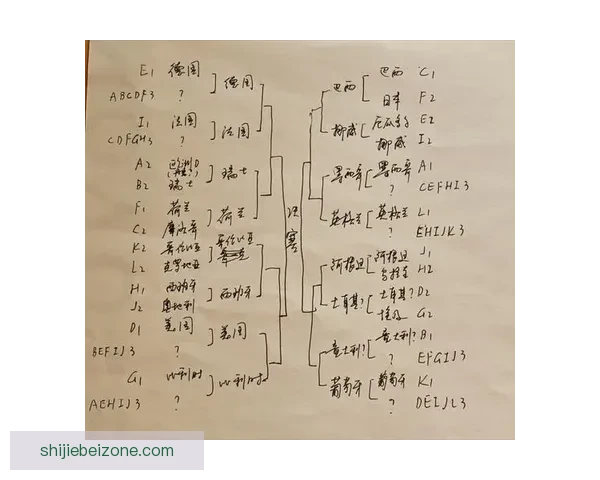 E1 德国
ABCDF3 ?
德国
I1 法国
CDFGH3 ?
法国
A2 欧洲D
B2 瑞士
瑞士
F1 荷兰
C2 摩洛哥
荷兰
K2 哥伦比亚
L2 克罗地亚
哥伦比亚
H1 西班牙
J2 奥地利
西班牙
D1 美国
BEFIJ3 ?
美国
G1 比利时
AEHIJ3 ?
比利时
决赛
巴西
巴西 C1
日本 F2
挪威
厄瓜多尔 E2
挪威 I2
墨西哥
墨西哥 A1
? CEFHI3
英格兰
英格兰 L1
? EHIJK3
阿根廷
阿根廷 J1
乌拉圭 H2
土耳其?
土耳其? D2
埃及 G2
意大利?
意大利? B1
? EFGIJ3
葡萄牙
葡萄牙 K1
? DEIJL3
shijiebeizone.com